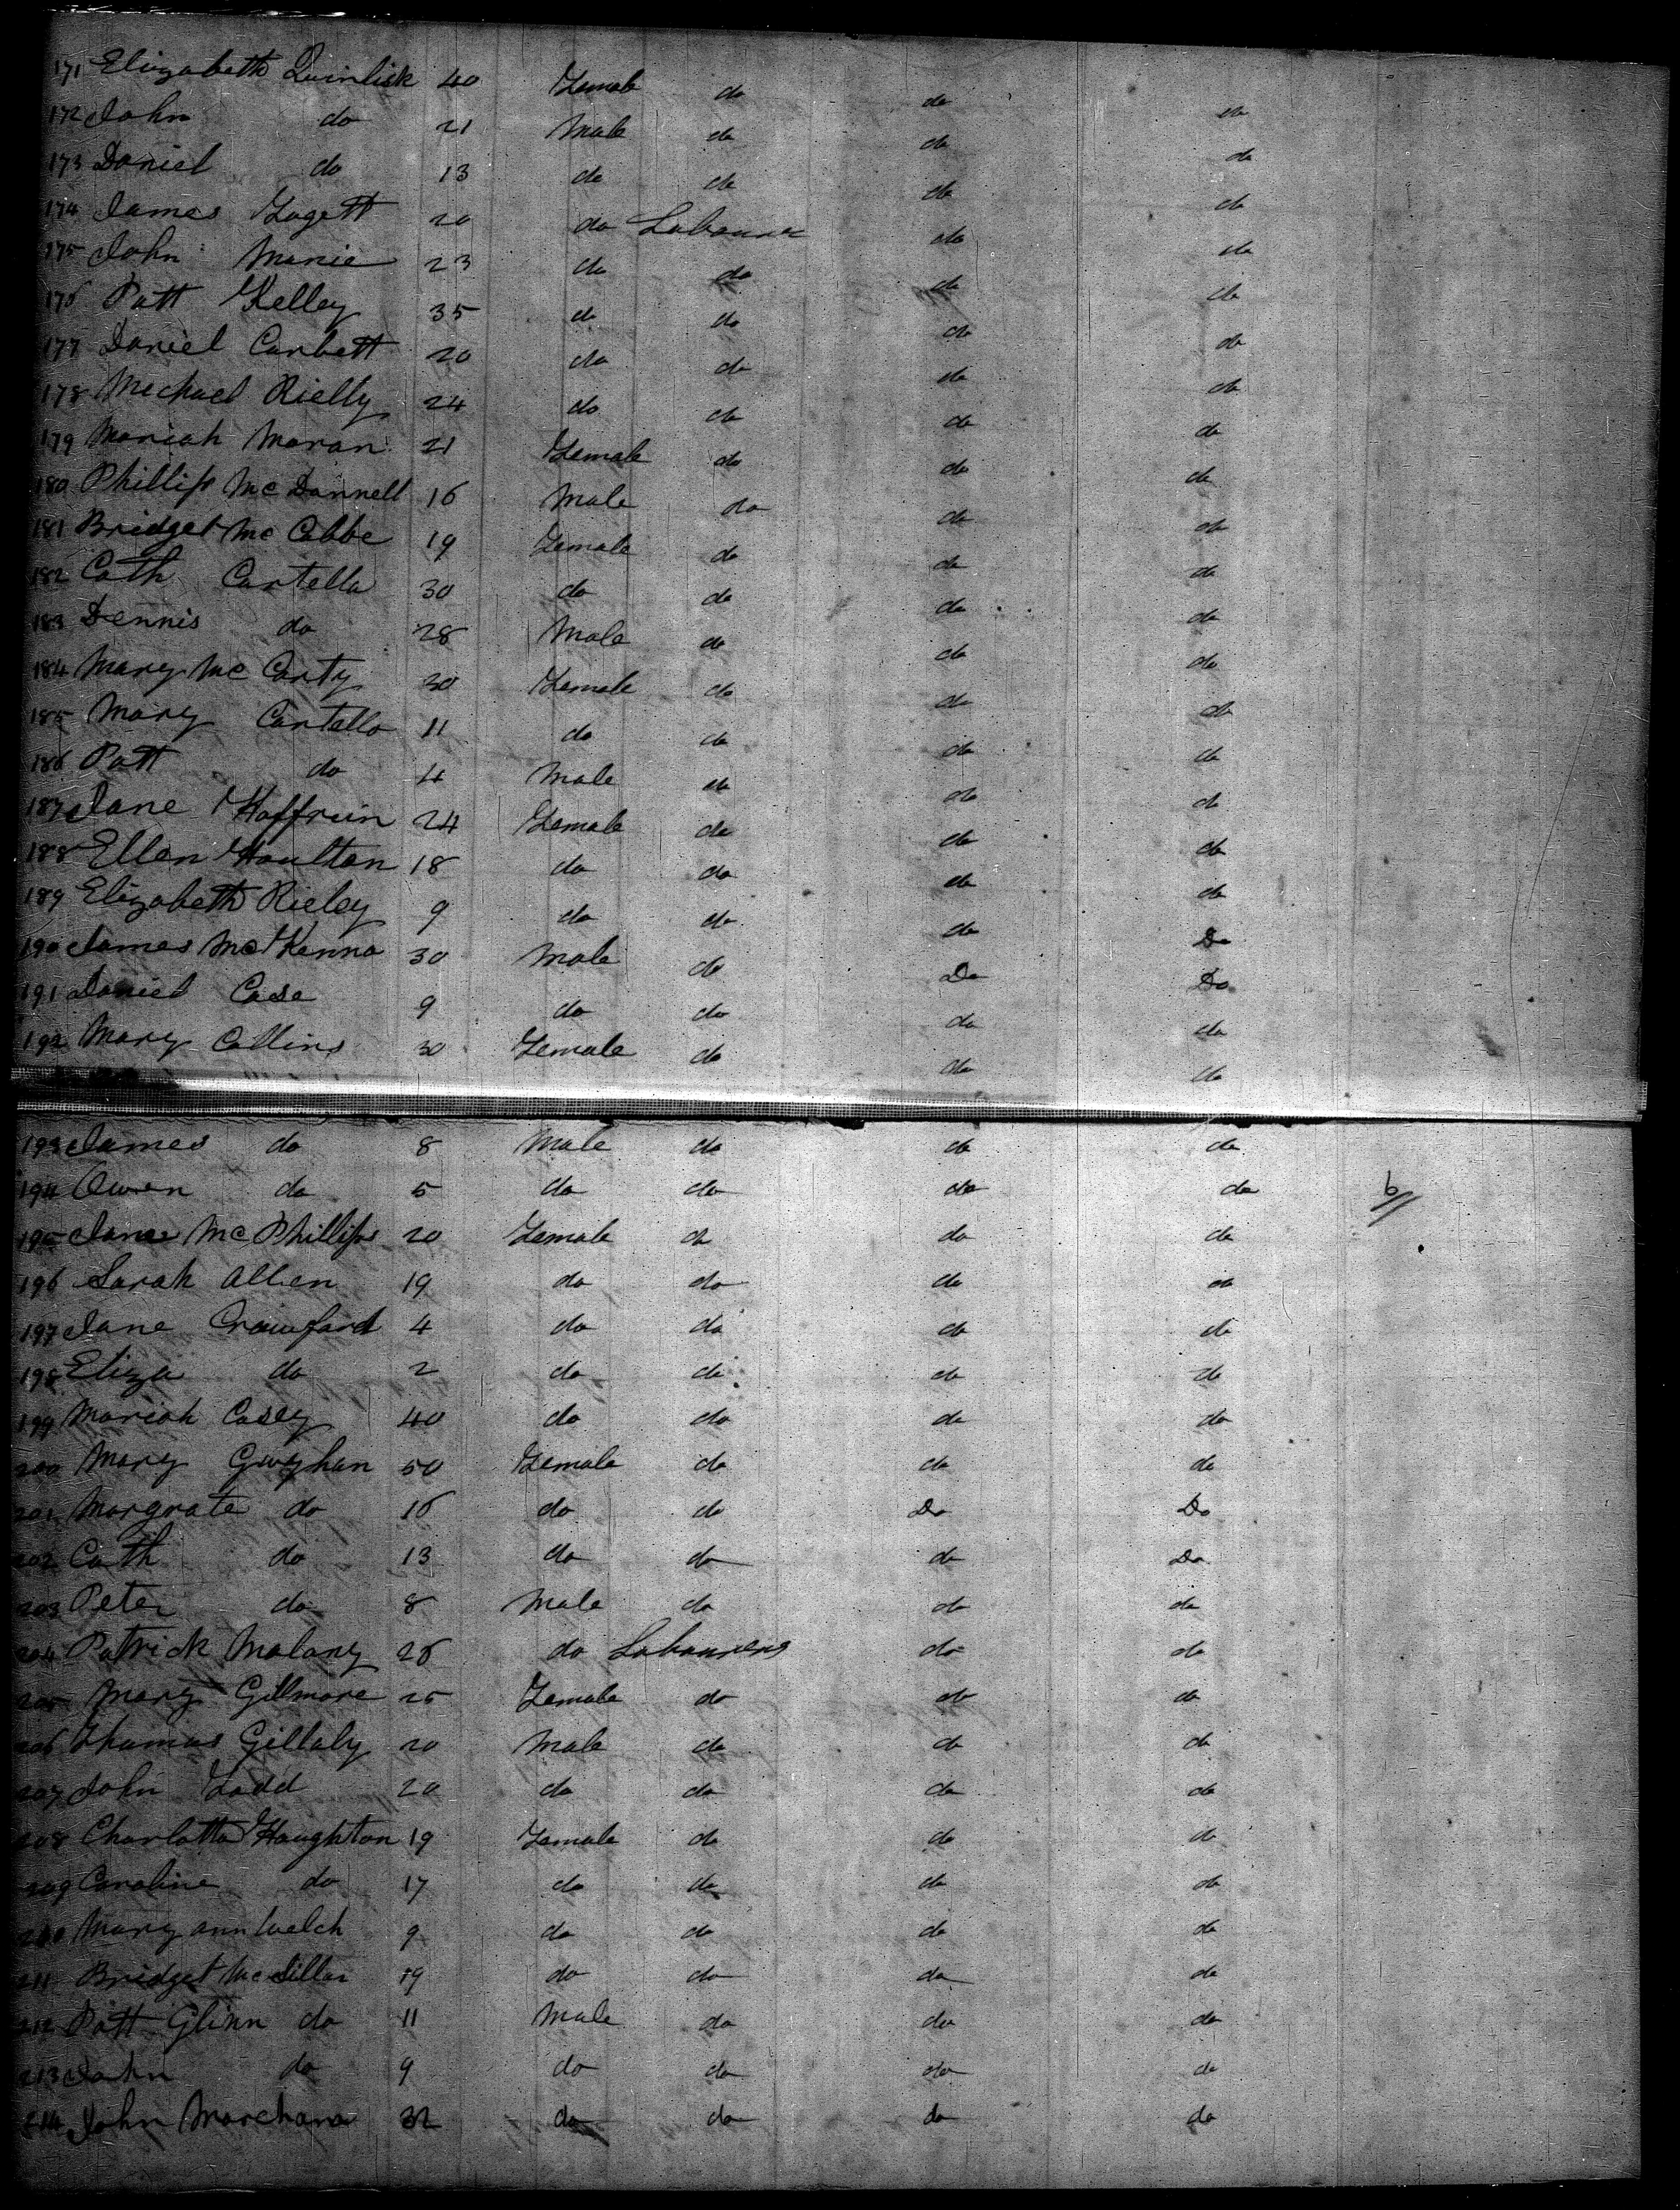 171 Elizabeth Quinlisk 40 Female do do do
172 John do 21 Male do do do
173 Daniel do 13 do do do do
174 James Fogett 20 do Labourer do do
175 John Manie 23 do do do do
176 Patt Kelley 35 do do do do
177 Daniel Carbett 20 do do do do
178 Mechael Rielly 24 do do do do
179 Mariah Moran 21 Female do do do
180 Phillip McDonnell 16 Male do do do
181 Bridget McCabbe 19 Female do do do
182 Cath Cartello 30 do do do do
183 Dennis do 28 Male do do do
184 Mary McCarty 30 Female do do do
185 Mary Cartello 11 do do do do
186 Patt do 4 Male do do do
187 Jane Haffrein 24 Female do do do
188 Ellen Houlton 18 do do do do
189 Elizabeth Rieley 9 do do do Do
190 James McKenna 30 Male do Do Do
191 Daniel Case 9 do do do do
192 Mary Collins 30 Female do do do
193 James do 8 Male do do do
194 Owen do 5 do do do do 6
195 Jane McPhillips 20 Female do do do
196 Sarah Allen 19 do do do do
197 Jane Crawford 4 do do do do
198 Eliza do 2 do do do do
199 Mariah Casey 40 do do do do
200 Mary Gwyhan 50 Female do do do
201 Margrate do 16 do do Do Do
202 Cath do 13 do do do Do
203 Peter do 8 Male do do do
204 Patrick Malony 26 do Labourers do do
205 Mary Gillmore 25 Female do do do
206 Thomas Gillaly 20 Male do do do
207 John Ladd 20 do do do do
208 Charlotta Haughton 19 Female do do do
209 Caroline do 17 do do do do
210 Mary ann Welch 9 do do do do
211 Bridget 19 do do do do
212 Patt Glinn do 11 Male do do do
213 John do 9 do do do do
214 John Marchana 32 do do do do